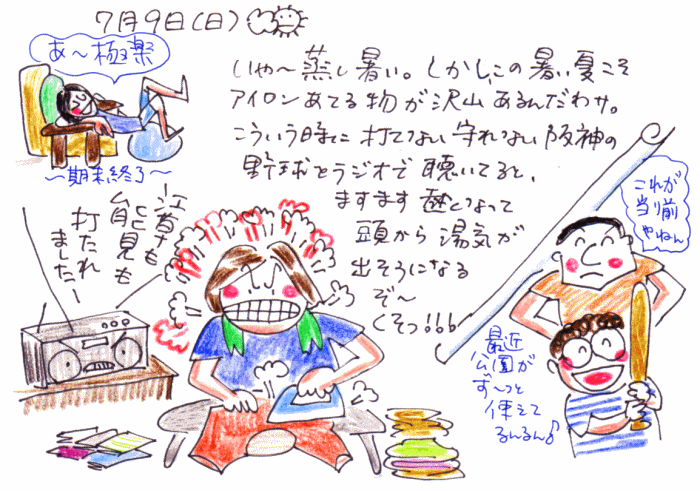 7月9日(日)
あ〜極楽
〜期末終了〜
いや〜蒸し暑い。しかし、この暑い夏こそ
アイロンあてる物が沢山あるんだわサ。
こういう時に打てない守れない阪神の
野球をラジオで聴いてると、
ますます
なって
頭から湯気が
出そうになる
ぞ〜
くそっ!!!
江夏も
能見も
打たれ
ました〜
これが
当り前
やねん
最近
公園が
ず〜っと
使えて
るんるん♪